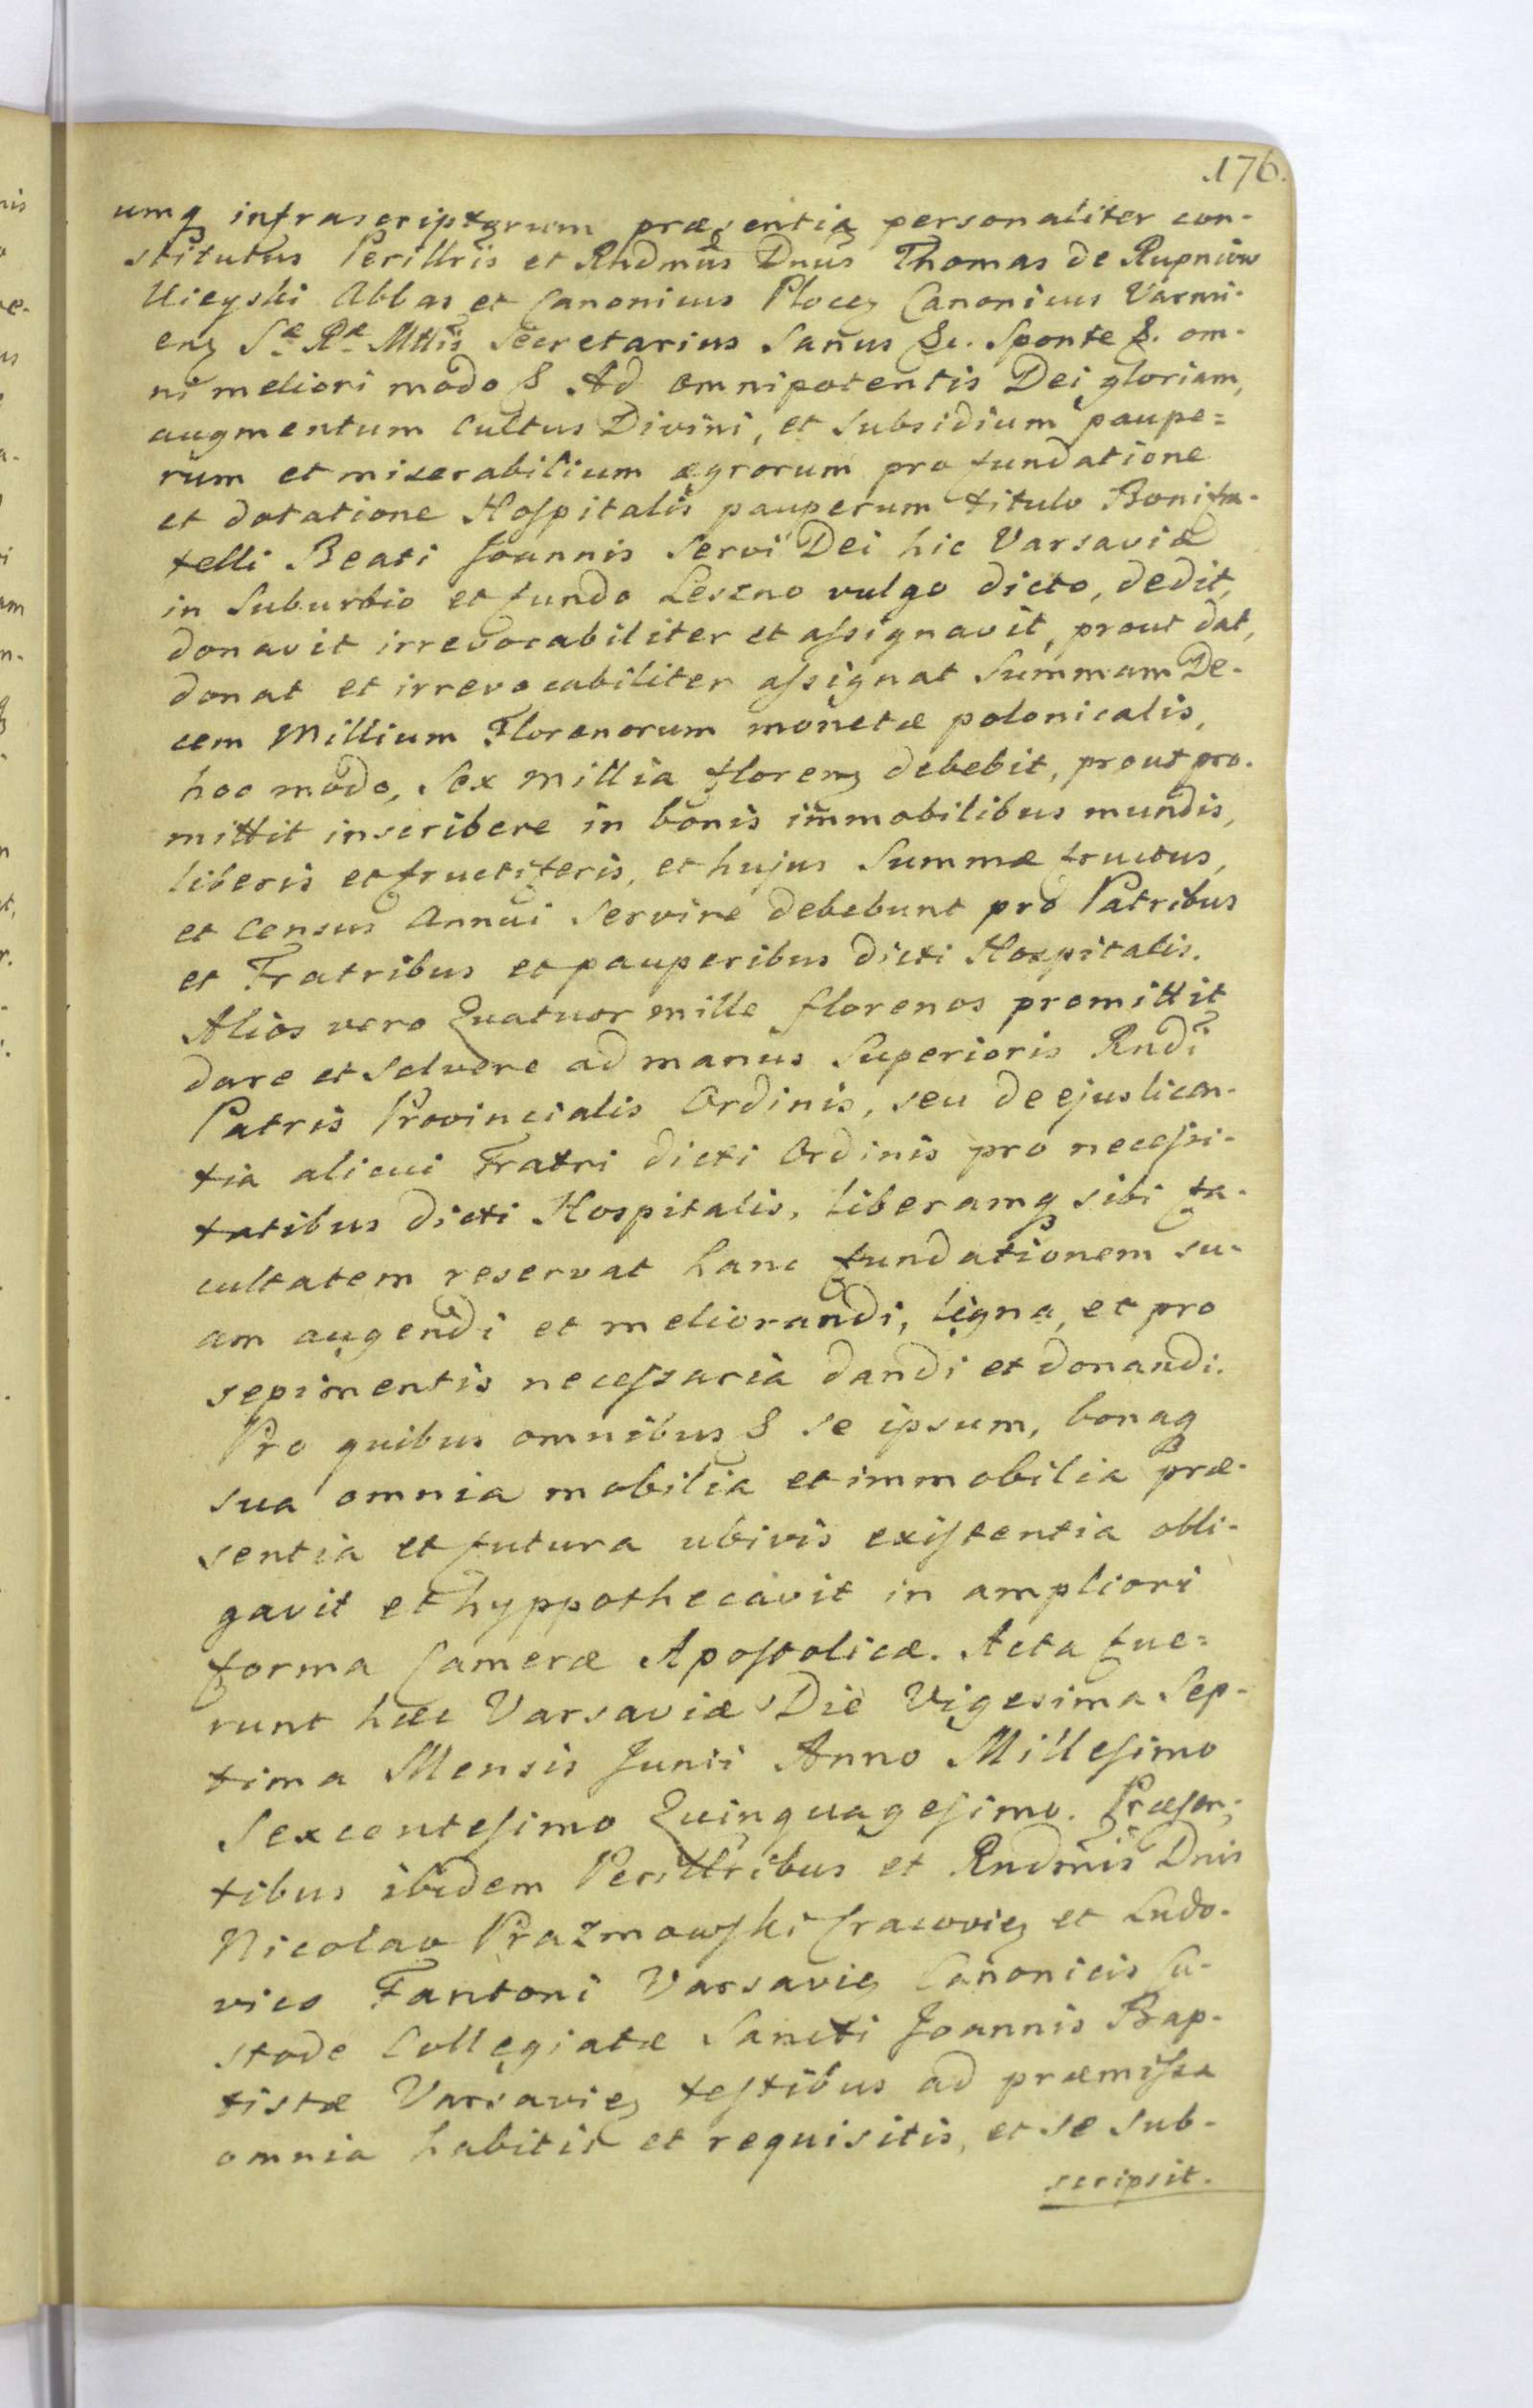 176.
umq infrascriptorum præsentia personaliter con-
stitutus Perillris et Rndmus Dnus Thomas de Rupniow
Uieyski Abbas et Canonicus Plocen Canonicus Varmi-
en Sæ Ræ Mttis Secretarius Sanus &c. Sponte &. om-
ni meliori modo & Ad omnipotentis Dei gloriam,
augmentum Cultus Divini, et subsidium paupe=
rum et miserabilium ægrorum pro fundatione
et dotatione Hospitalis pauperum titulo Bonifra-
telli Beati Joannis Servi Dei hic Varsaviæ
in Suburbio et fundo Leszno vulgo dicto, dedit,
donavit irrevocabiliter et assignavit, prout dat,
donat et irrevocabiliter assignat Summam De-
cem Millium Florenorum monetæ polonicalis,
hoc modo, Sex Millia floren debebit, prout pro-
mittit inscribere in bonis immobilibus mundis,
liberis et fructiferis, et hujus Summæ fructus,
et Census Annui Servire debebunt pro Patribus
et Fratribus et pauperibus dicti Hospitalis.
Alios vero Quatuor mille florenos promittit
dare et solvere ad manus Superioris Rndi
Patris Provincialis Ordinis, seu de ejus licen-
tia alicui Fratri dicti Ordinis pro necessi-
tatibus dicti Hospitalis, liberamq sibi fa-
cultatem reservat hanc fundationem su-
am augendi et meliorandi, ligna, et pro
sepimentis necessaria dandi et donandi.
Pro quibus omnibus & se ipsum, bonaq
sua omnia mobilia et immobilia præ-
sentia et futura ubivis existentia obli-
gavit et hyppothecavit in ampliori
forma Cameræ Apostolicæ. Acta fue=
runt hæc Varsaviæ Die Vigesima Sep-
tima Mensis Junii Anno Millesimo
Sexcentesimo Quinquagesimo. Præsen-
tibus ibidem Perillribus et Rndmis Dnis
Nicolao Prazmowski Cracovien et Ludo-
vico Fantoni Varsavien Canonicis Cu-
stode Collegiatæ Sancti Joannis Bap-
tistæ Varsavien testibus ad præmissa
omnia habitis et requisitis, et se sub-
scripsit.